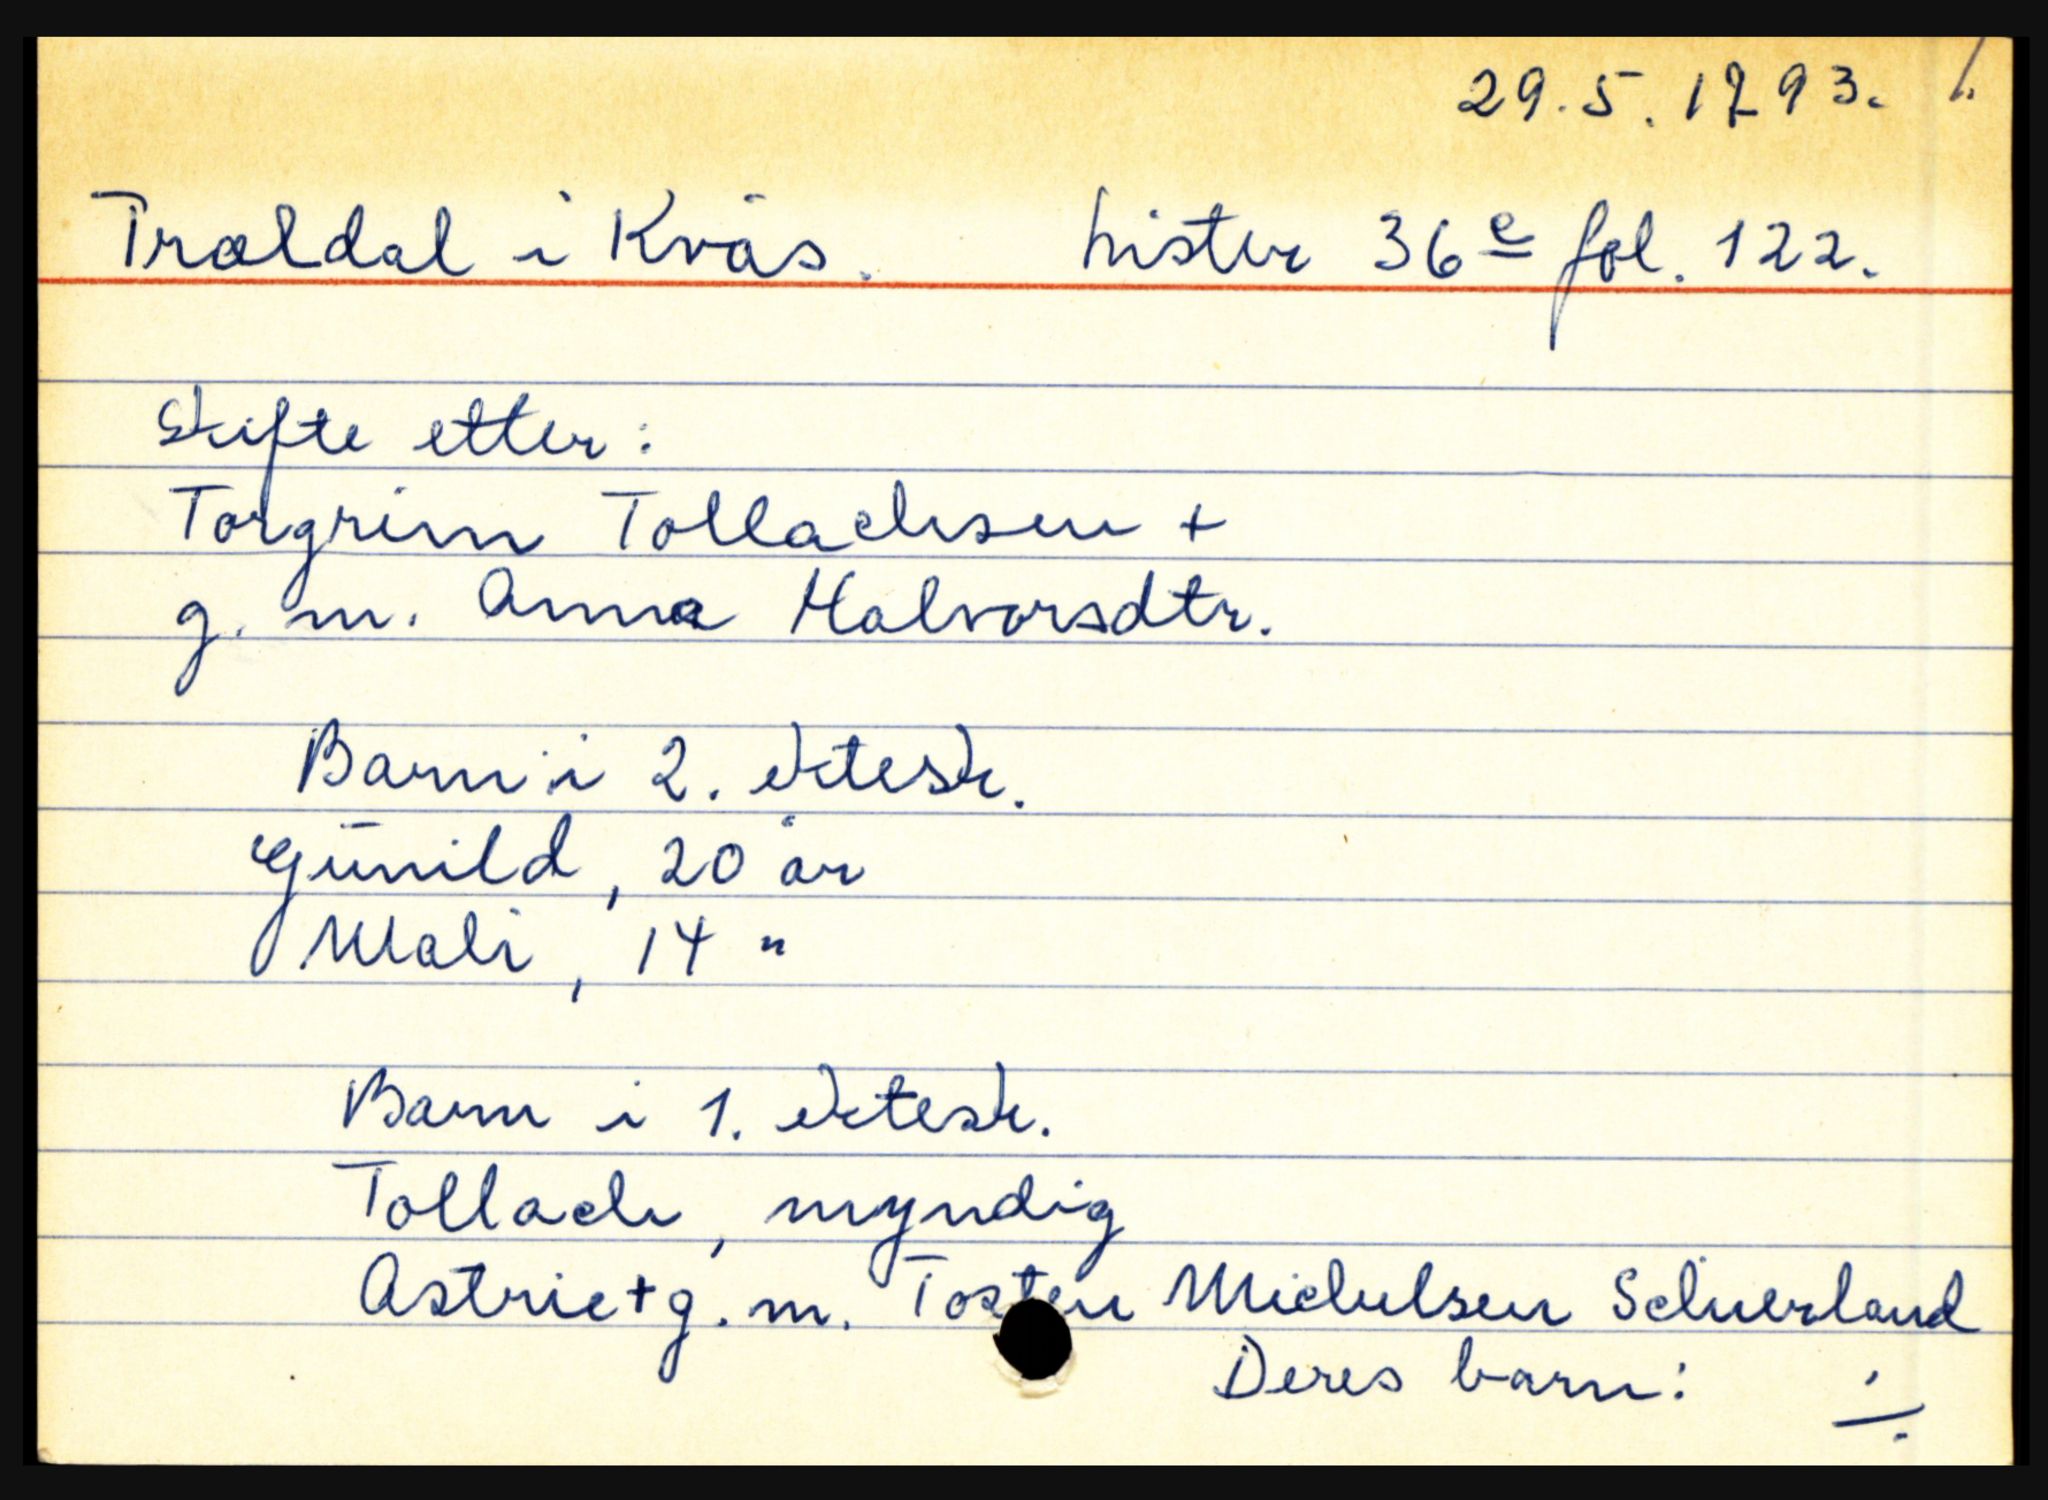 29.5.1793. 1.
Træledal i Kvås. Lister 36e fol. 122.
Skifte etter:
Torgrim Tollachsen +
g. m. Anna Halvorsdtr.
Barn i 2. ektesk.
Gūnild, 20 år
Mali, 14 "
Barn i 1. ektesk.
Tollach, myndig
Astrie + g. m. Tosten Michelsen
Deres barn: ./.